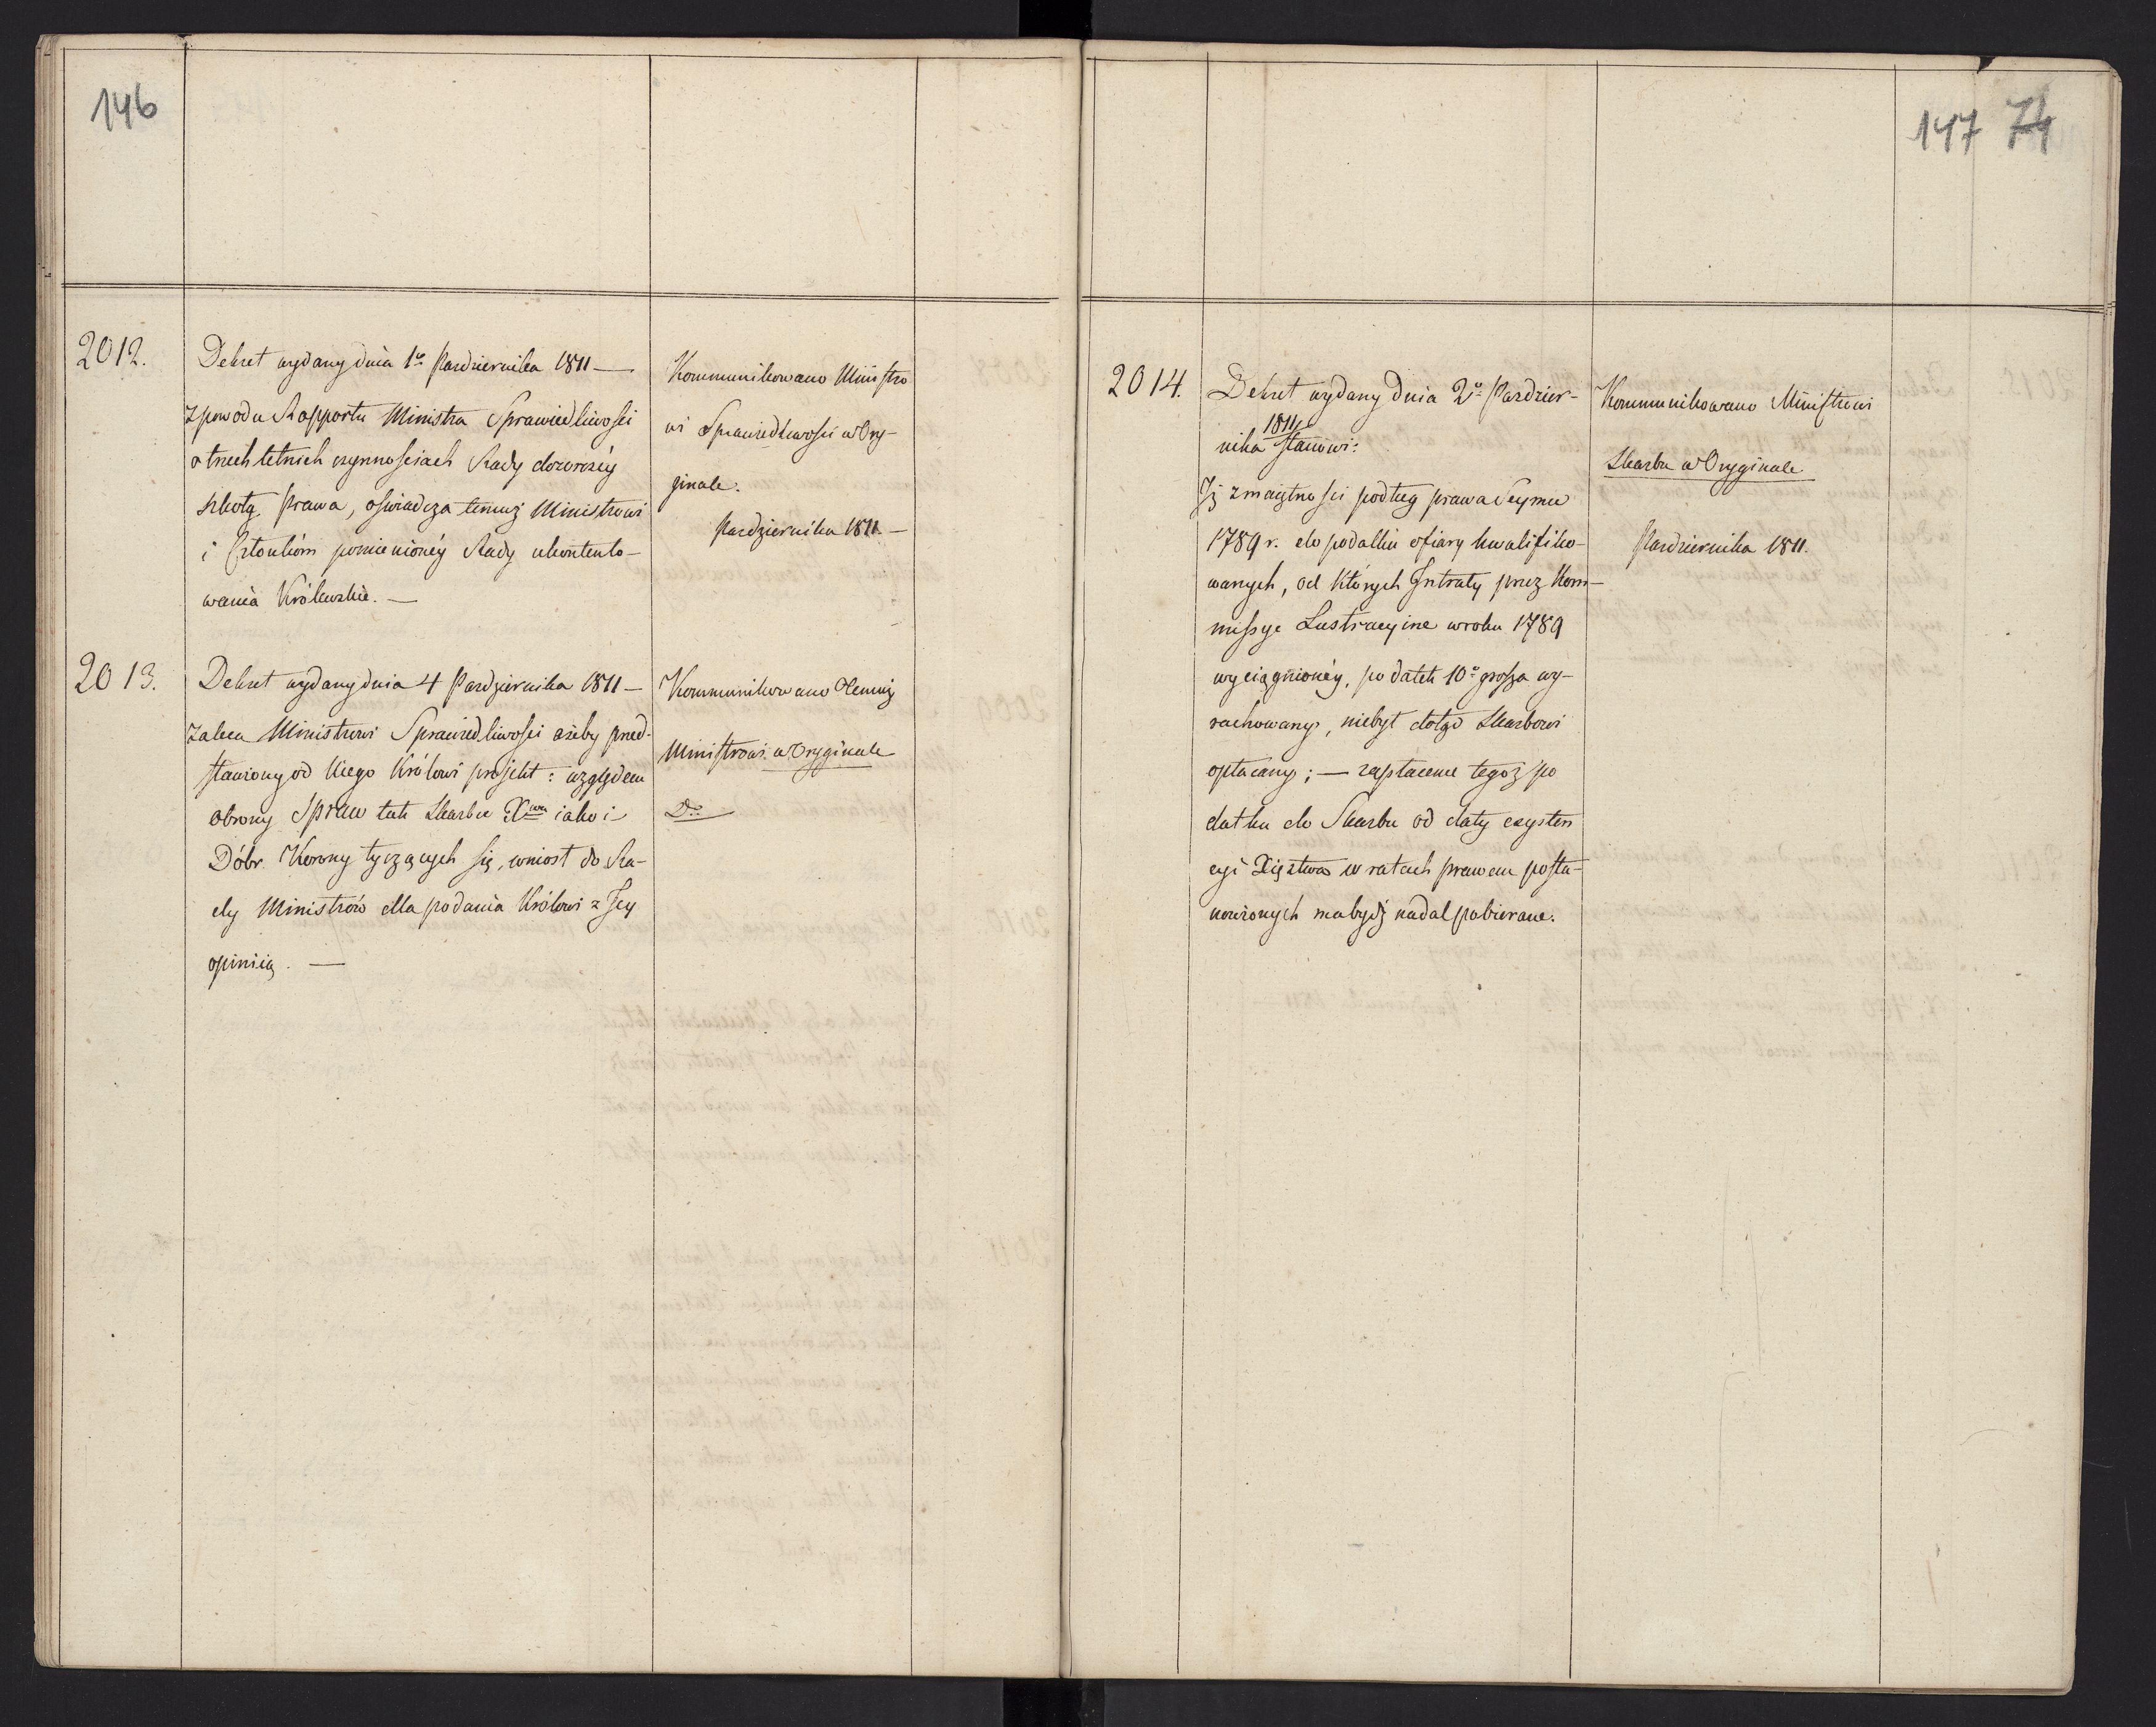 146
2012.
Dekret wydany dnia 1º Pazdziernika 1811 —
z powodu Rapportu Ministra Sprawiedliwości
o trzech letnich czynnościach Rady dozorczéy
szkołę prawa, oświadcza temuż Ministrowi
i Członkóm pomienionéy Rady ukontento-
wania Królewskie. —
Kommunikowano Ministro
wi Sprawiedliwości w Ory-
ginale.
Pazdziernika 1811. —
2013.
Dekret wydany dnia 4 Pazdziernika 1811 —
zaleca Ministrowi Sprawiedliwości ażeby przed-
stawiony od Niego Królowi projekt: względem
obrony Spraw tak Skarbu Xwa iako i
Dóbr Korony tyczących się, wniosł do Ra-
dy Ministrów dla podania Królowi z Jey
opiniią. —
Kommunikowano Temuż
Ministrowi w Oryginale
Do
147 74
2014.
Dekret wydany dnia 2º Pazdzier-
1811
nika stanowi:
Iż z maiętności podług prawa Seymu
1789 r. do podatku ofiary kwalifiko-
wanych, od których Intraty przez Kom-
missye Lustracyine w roku 1789
wyciągnionéy, podatek 10º grosza wy-
rachowany, niebył dotąd Skarbowi
opłacany; — zapłacenie tegoż po
datku do Skarbu od daty exysten
cyi Xięztwa w ratach prawem posta-
nowionych ma bydź nadal pobierane.
Kommunikowano Ministrowi
Skarbu w Oryginale
Pazdziernika 1811.